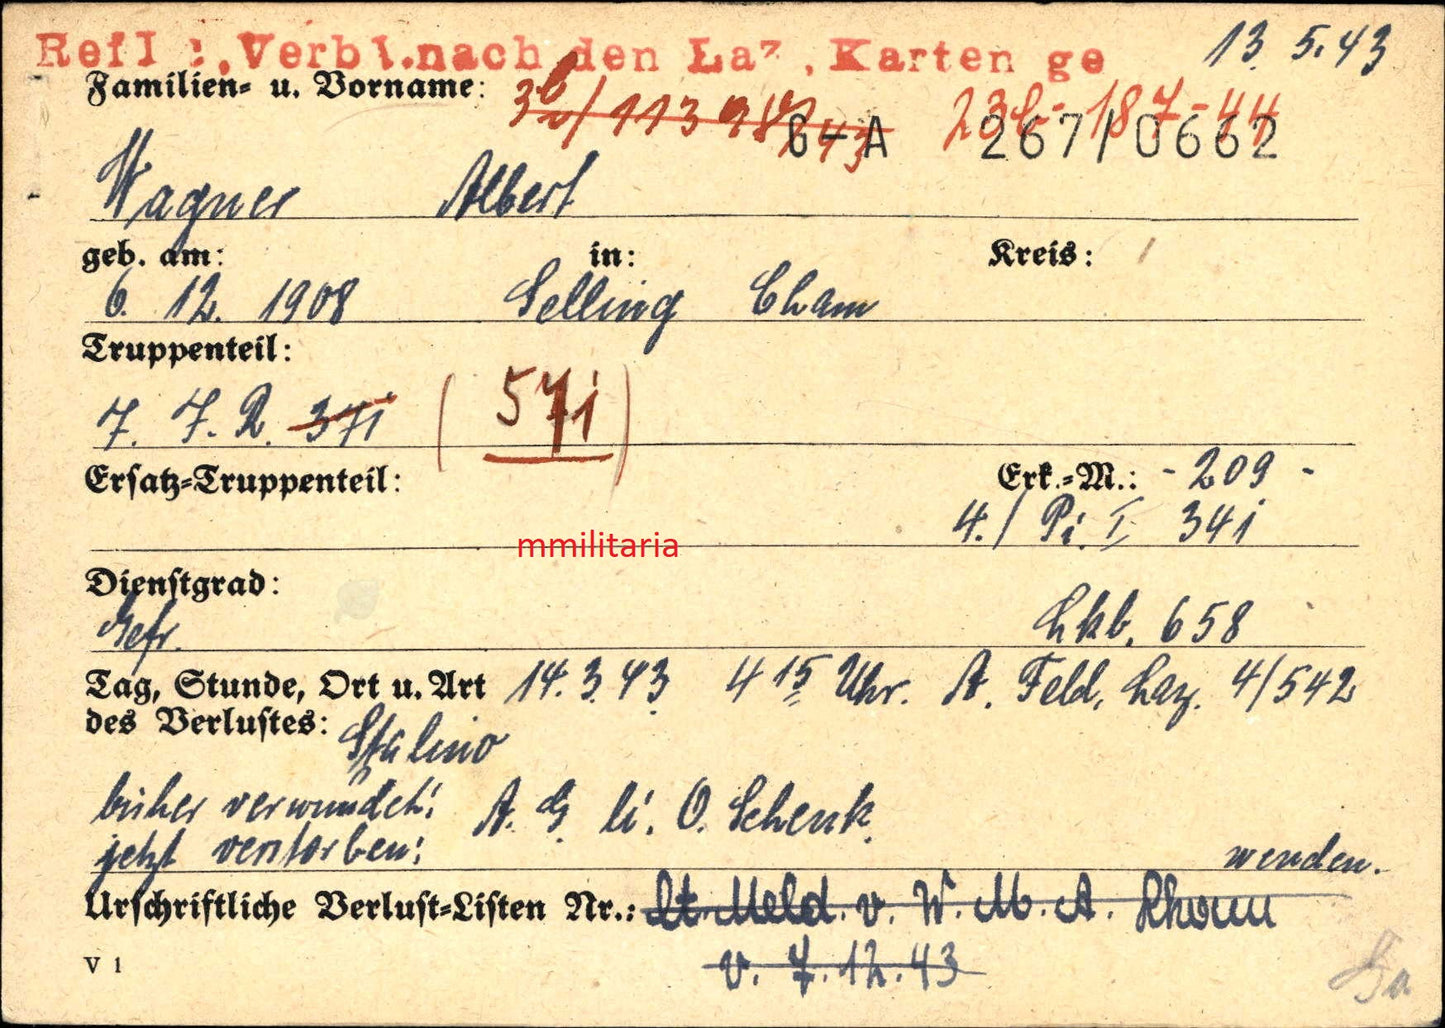 Refl :.Verbl.nach den Laz.Karten ge
13. 5. 43
Familien- u. Vorname:
G-A 267/0662
Wagner Albert
geb. am: in: Kreis:
6. 12. 1908 Selling Cham
Truppenteil:
7. J. R. 371 (571)
Ersatz-Truppenteil: Erk.-M.: - 209 -
4./ Pi. 341
mmilitaria
Dienstgrad:
Gefr. Lkb. 658
Tag, Stunde, Ort u. Art 14. 3. 43 4 15 Uhr. A. Feld. Laz. 4/542
des Verlustes: Stalino
bisher verwundet: A. G. li. O. Schenk.
jetzt verstorben: wenden.
Urschriftliche Verlust-Listen Nr.: lt. Meld. v. W. M. A.
v. 7. 12. 43
V 1